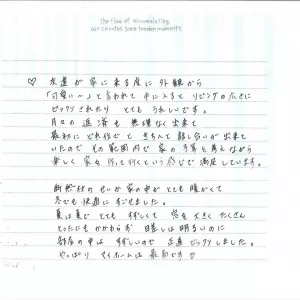 The flow of accumulating
air created some tender moments
♡ 友達が家に来る度に外観から
「可愛い〜」と言われて中に入ると リビングの広さに
ビックリされたり とても うれしいです。
月々の返済も無理なく出来て
最初に どれ位で と きちんと 話し合いが出来て
いたので その範囲内で 家の予算と見ながら
楽しく 家を作って行くという感じで 満足しています。
断熱材のせいか 家の中が とても暖かくて
冬でも快適にすごせました。
夏は夏で とても すずしくて 窓を大きく たくさん
とったにも かかわらず 日差しは明るいのに
部屋の中は すずしいので 正直 ビックリしました。
やっぱり マイホームは最高です